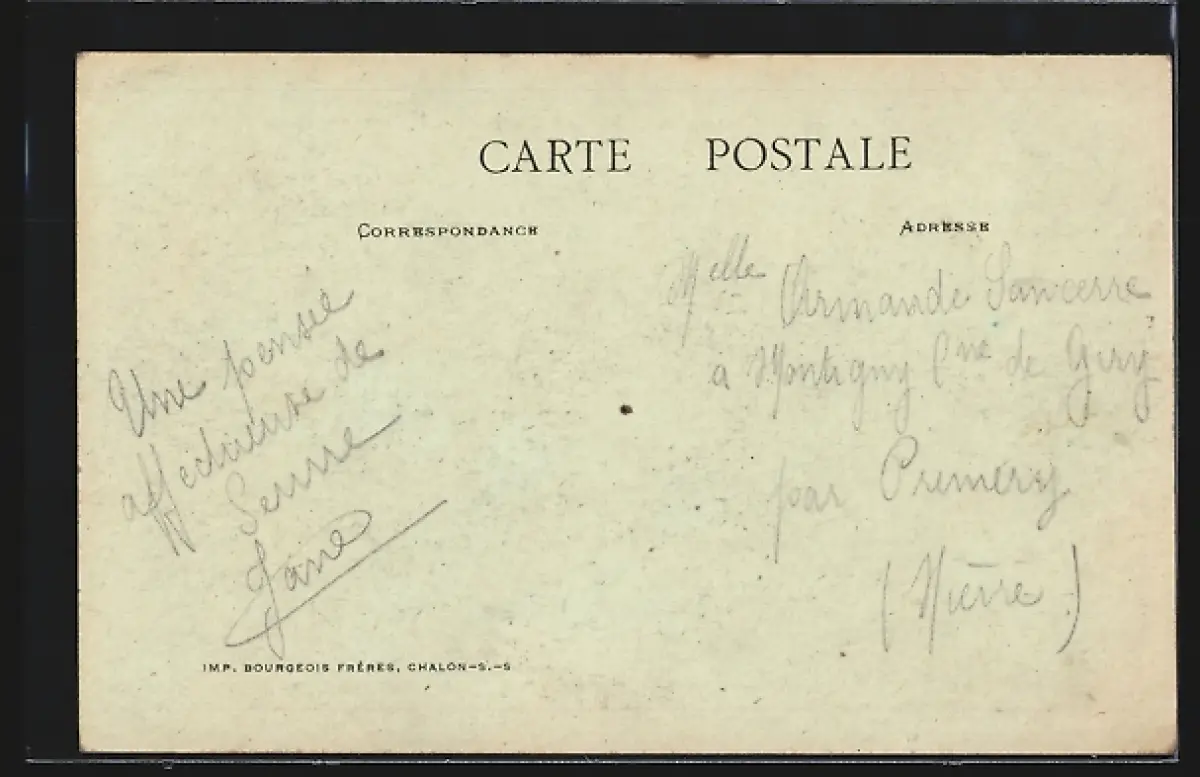 CARTE POSTALE
CORRESPONDANCE
Une pensée
affectueuse de
Seurre
Jane
IMP. BOURGEOIS FRÈRES, CHALON-S.-S
ADRESSE
Melle Armande Sancerre
à Montigny Cne de Giry
par Premery
(Nièvre)